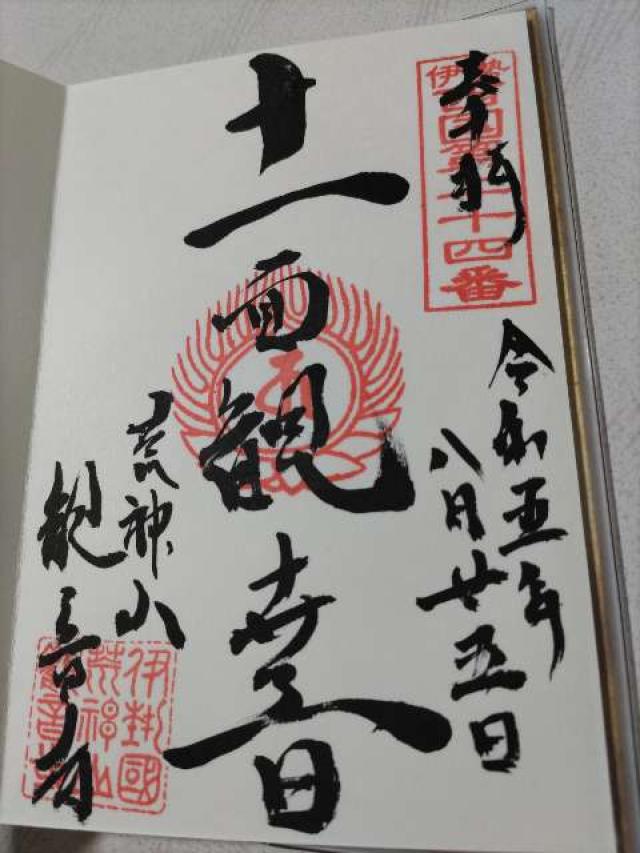 奉拝
伊勢西国第二十四番
令和五年
八月廿五日
十一面観世音
荒神山
観音寺
伊勢國
荒神山
観音寺